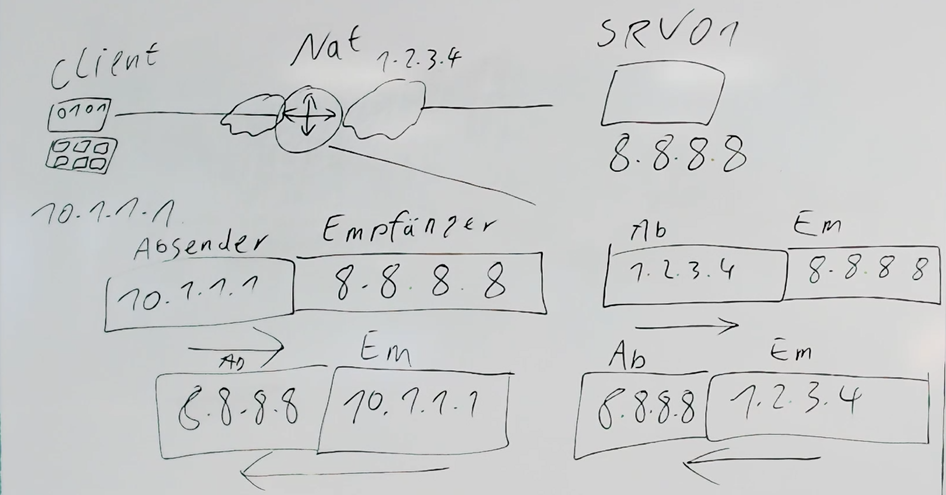 Client
Nat
1.2.3.4
SRV01
0101
8.8.8.8
10.1.1.1
Absender
Empfänger
10.1.1.1
8.8.8.8
Ab
Em
1.2.3.4
8.8.8 8
Ab
Em
8.8.8.8
10.1.1.1
Ab
Em
8.8.8.8
1.2.3.4